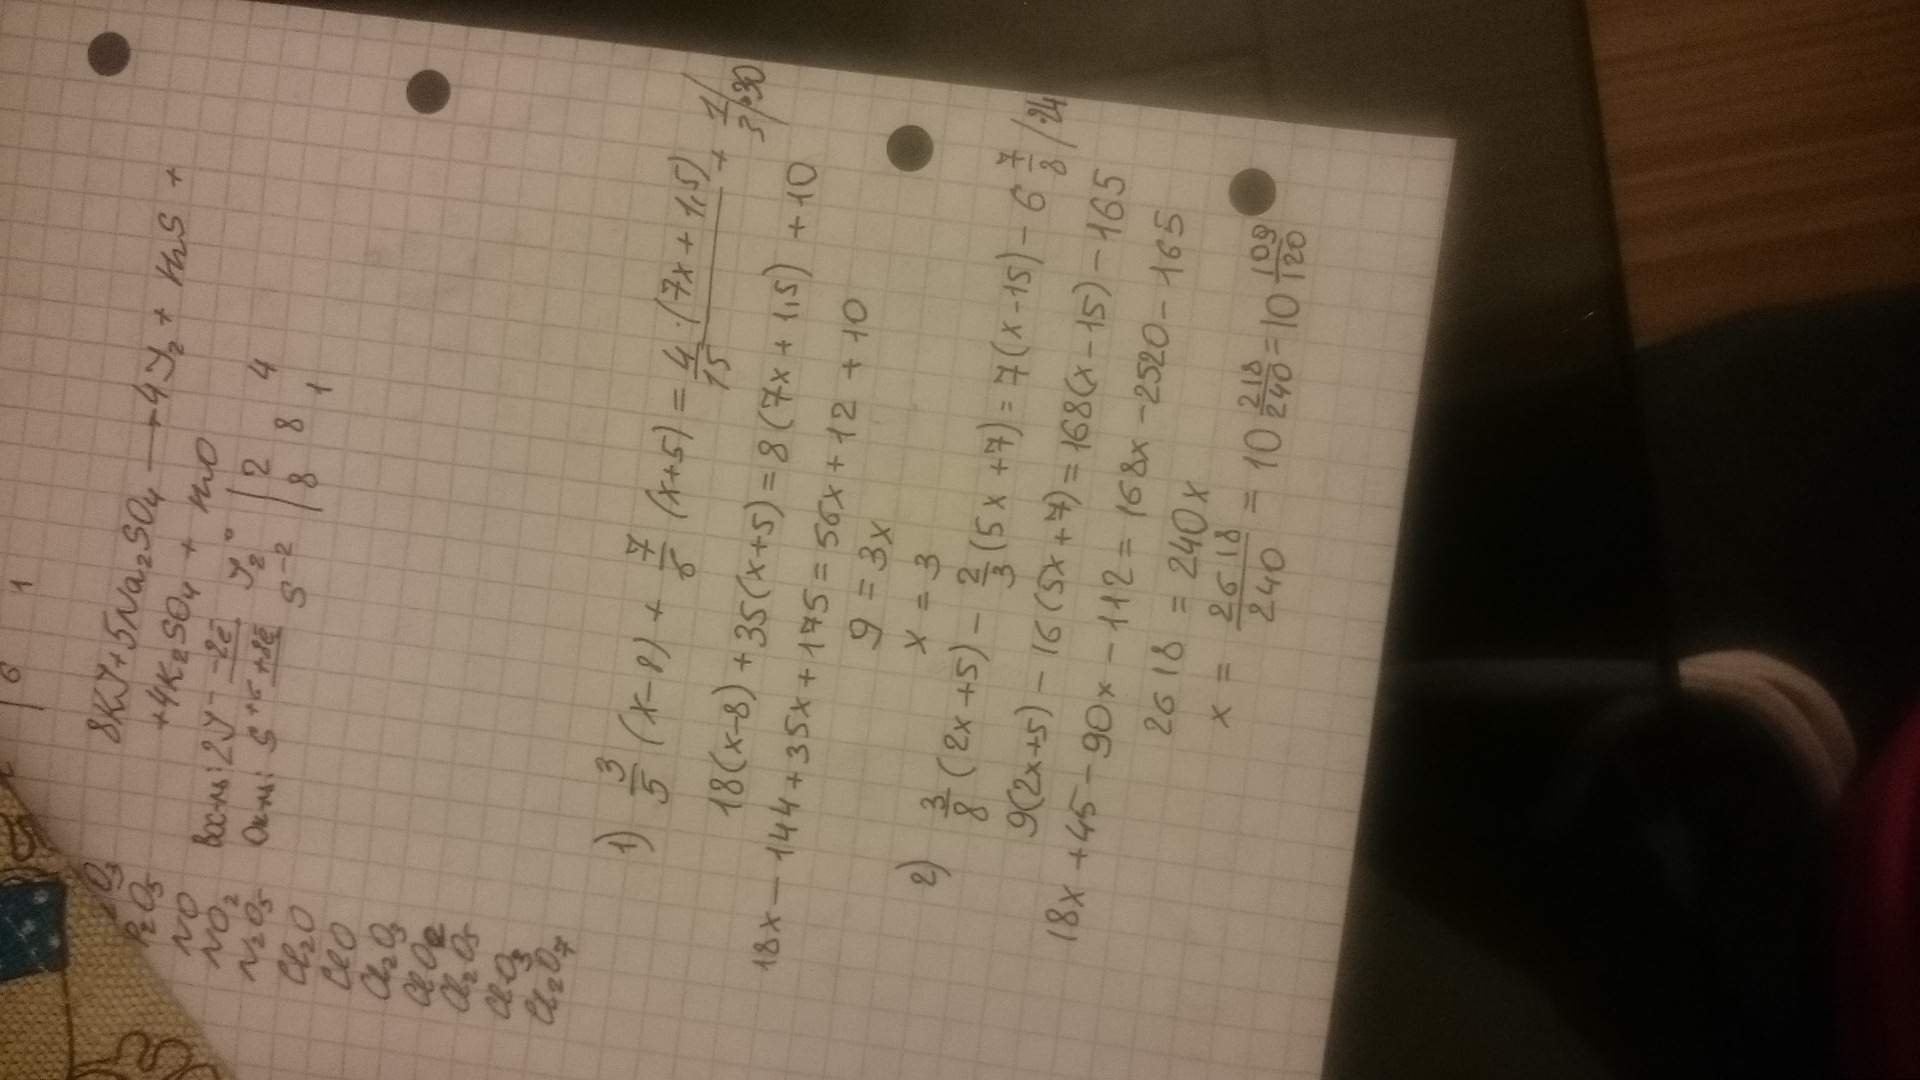 6 1
8KJ+5Na₂SO₄ → 4J₂ + H₂S +
+4K₂SO₄ + H₂O
Вос-ль: 2J⁻ -2ē J₂° | 2 8 4
Ок-ль: S⁺⁶ +8ē S⁻² | 8 8 1
O₃
P₂O₅
NO
NO₂
N₂O₅
Cl₂O
ClO
Cl₂O₃
ClO₂
Cl₂O₅
ClO₃
Cl₂O₇
1) 3/5 (x-8) + 7/6 (x+5) = 4/15 · (7x+1,5) + 1/3 /·30
18(x-8) + 35(x+5) = 8(7x+1,5) + 10
18x - 144 + 35x + 175 = 56x + 12 + 10
9 = 3x
x = 3
2) 3/8 (2x+5) - 2/3 (5x+7) = 7(x-15) - 6 7/8 /·24
9(2x+5) - 16(5x+7) = 168(x-15) - 165
18x + 45 - 90x - 112 = 168x - 2520 - 165
2618 = 240x
x = 2618/240 = 10 218/240 = 10 109/120